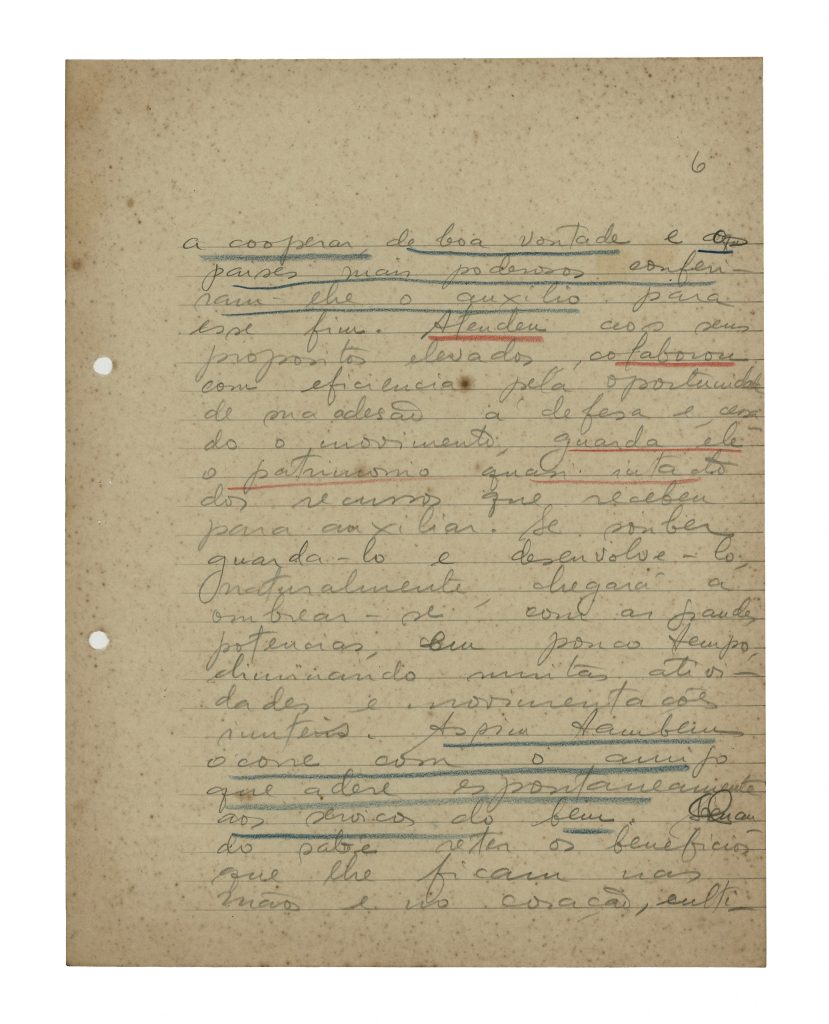 6
a cooperar, de boa vontade e os
paises mais poderosos conferi-
ram-lhe o auxilio para
esse fim. Atendeu aos seus
propositos elevados, colaborou
com eficiencia pela oportunidade
de sua adesão á defesa e, cessa
do o movimento, guarda ele
o patrimonio quasi intacto
dos recursos que recebeu
para auxiliar. Se souber
guarda-lo e desenvolve-lo,
naturalmente, chegará a
ombrear-se, com as grandes
potencias, em pouco tempo,
eliminando muitas ativi-
dades e movimentações
inuteis. Assim tambem
ocorre com o amigo
que adere espontaneamente
aos serviços do bem. Quan
do sabe reter os beneficios
que lhe ficam nas
mãos e no coração, culti-